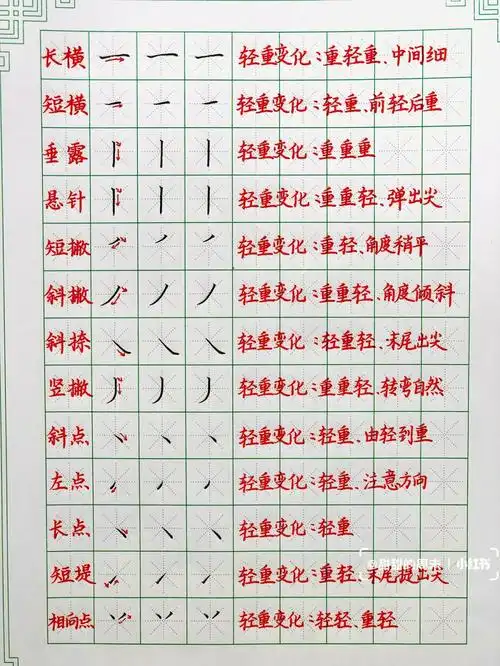 长横 轻重变化：重轻重、中间细
短横 轻重变化：轻重、前轻后重
垂露 轻重变化：重重重
悬针 轻重变化：重重轻、弹出尖
短撇 轻重变化：重轻、角度稍平
斜撇 轻重变化：重重轻、角度倾斜
斜捺 轻重变化：轻重轻、末尾出尖
竖撇 轻重变化：重重轻、转弯自然
斜点 轻重变化：轻重、由轻到重
左点 轻重变化：轻重、注意方向
长点 轻重变化：轻重
短堤 轻重变化：重轻、末尾提出尖
@甜甜的周末 | 小红书
相向点 轻重变化：轻轻、重轻